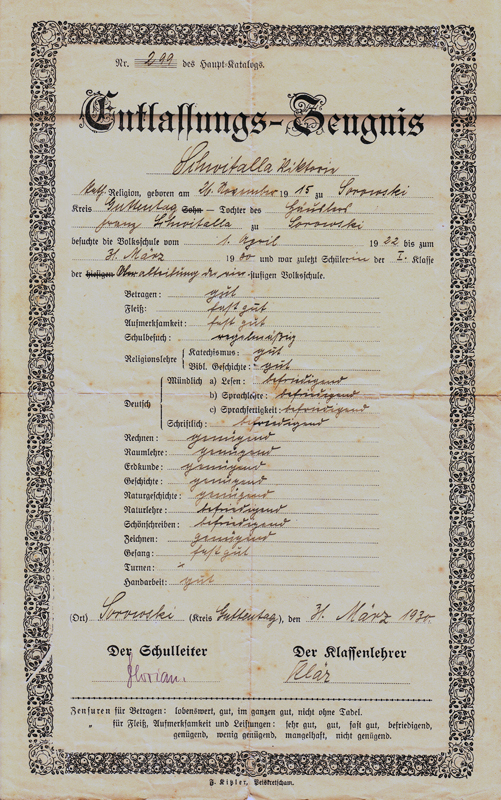 Nr. 299 des Haupt-Katalogs.
Entlassungs-Zeugnis
Schwitalla Viktorie
kath. Religion, geboren am 21. Dezember 1915 zu Sorowski
Kreis Guttentag Sohn — Tochter des Häuslers
Franz Schwitalla zu Sorowski
besuchte die Volksschule vom 1. April 1922 bis zum
31. März 1930 und war zuletzt Schülerin der I. Klasse
der hiesigen Oberabteilung der ein-stufigen Volksschule.
Betragen: gut
Fleiß: fast gut
Aufmerksamkeit: fast gut
Schulbesuch: regelmäßig
Religionslehre Katechismus: gut
Bibl. Geschichte: gut
Deutsch Mündlich a) Lesen: befriedigend
b) Sprachlehre: befriedigend
c) Sprachfertigkeit: befriedigend
Schriftlich: befriedigend
Rechnen: genügend
Raumlehre: genügend
Erdkunde: genügend
Geschichte: genügend
Naturgeschichte: genügend
Naturlehre: befriedigend
Schönschreiben: befriedigend
Zeichnen: genügend
Gesang: fast gut
Turnen: "
Handarbeit: gut
(Ort) Sorowski (Kreis Guttentag), den 31. März 1930.
Der Schulleiter Der Klassenlehrer
Florian. Klär
Zensuren für Betragen: lobenswert, gut, im ganzen gut, nicht ohne Tadel.
„ für Fleiß, Aufmerksamkeit und Leistungen: sehr gut, gut, fast gut, befriedigend,
genügend, wenig genügend, mangelhaft, nicht genügend.
F. Kitzler, Peiskretscham.